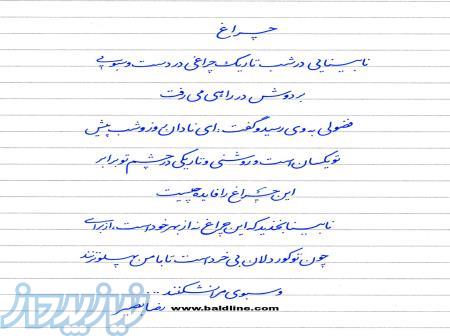 چراغ
نابینایی در شب تاریک چراغی در دست و سبویی
بر دوش در راهی می رفت
فضولی به وی رسید و گفت: ای نادان روز و شب پیش
تو یکسان است و روشنی و تاریکی در چشم تو برابر
این چراغ را فایده چیست
نابینا بخندید که این چراغ نه از بهر خود است، از برای
چون تو کور دلان بی خرد است تا با من پهلو نزنند
و سبوی مرا نشکنند...
www.baldline.com رضا نصیر
نیازپرداز